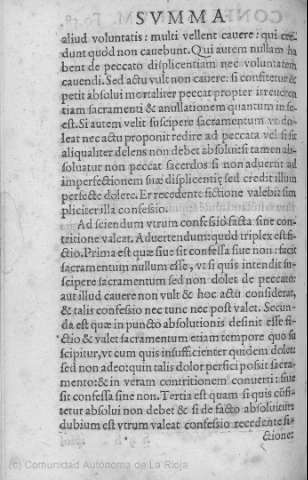 SVMMA
aliud voluntatis: multi vellent cauere: qui cre-
dunt quod non cauebunt. Qui autem nullam ha
bent de peccato displicentiam nec voluntatem
cauendi. Sed actu vult non cauere: si confitetur &
petit absolui mortaliter peccat propter irreueren
tiam sacramenti & anullationem quantum in se
est. Si autem velit suscipere sacramentum vt do-
leat nec actu proponit redire ad peccata vel si sit
aliqualiter dolens non debet absolui si tamen ab-
soluatur non peccat sacerdos si non aduertit ad
imperfectionem suæ displicentię sed credit illum
perfecte dolere. Et recedente fictione valebit sim
pliciter illa confessio.
Ad sciendum vtrum confessio facta sine con-
tritione valeat. Aduertendum: quod triplex est fi-
ctio. Prima est quæ siue sit confessa siue non: facit
sacramentum nullum esse, vt si quis intendit su-
scipere sacramentum sed non dolet de peccato:
aut illud cauere non vult & hoc actu considerat,
& talis confessio nec tunc nec post valet. Secun-
da est quæ in puncto absolutionis desinit esse fi-
ctio & valet sacramentum etiam tempore quo su
scipitur, vt cum quis insufficienter quidem dolet
sed non adeo: quin talis dolor perfici possit sacra-
mento: & in veram contritionem conuerti: siue
sit confessa siue non. Tertia est quam si quis cōfi-
tetur absolui non debet & si de facto absoluitur
dubium est vtrum valeat confessio recedente fi-
ctione:
(c) Comunidad Autónoma de La Rioja